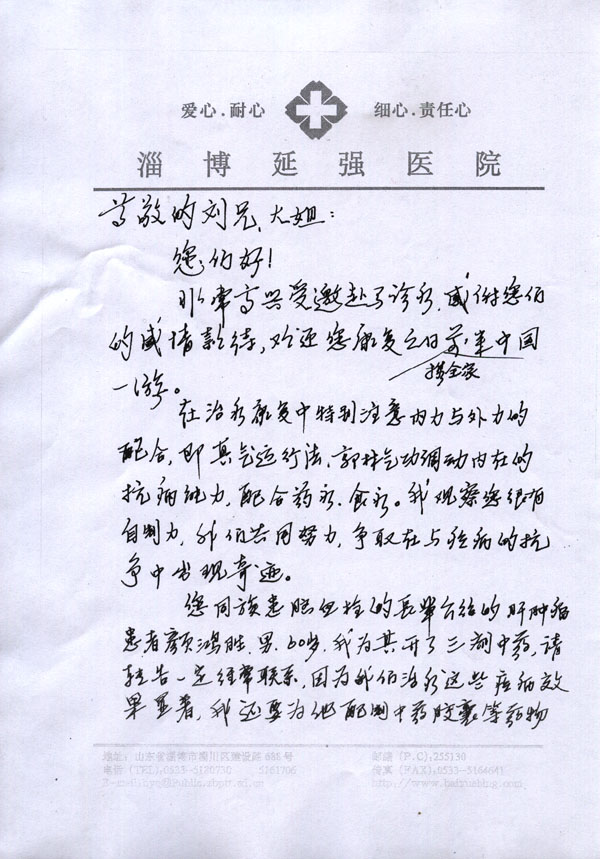 爱心.耐心 细心.责任心
淄博延强医院
尊敬的刘兄、大姐：
您们好！
非常高兴受邀赴马诊疗，感付您们
的盛情款待，欢迎您康复之日前来中国
携全家
一游。
在治疗康复中特别注意内力与外力的
配合，即真气运行法、郭林气功调动内在的
抗病能力，配合药疗、食疗。我观察您很有
自制力，我们共同努力，争取在与癌病的抗
争中出现奇迹。
您同族患脑血栓的长辈介绍的肝肿瘤
患者颜鸿胜，男，60岁，我为其开了三剂中药，请
转告一定经常联系，因为我们治疗这些癌病效
果显著，我还要为他配制中药胶囊等药物
地址：山东省淄博市淄川区建设路 685号
邮编 (P.C):255130
电话 (TEL):0533-5180730 5161706
传真 (FAX):0533-5164641